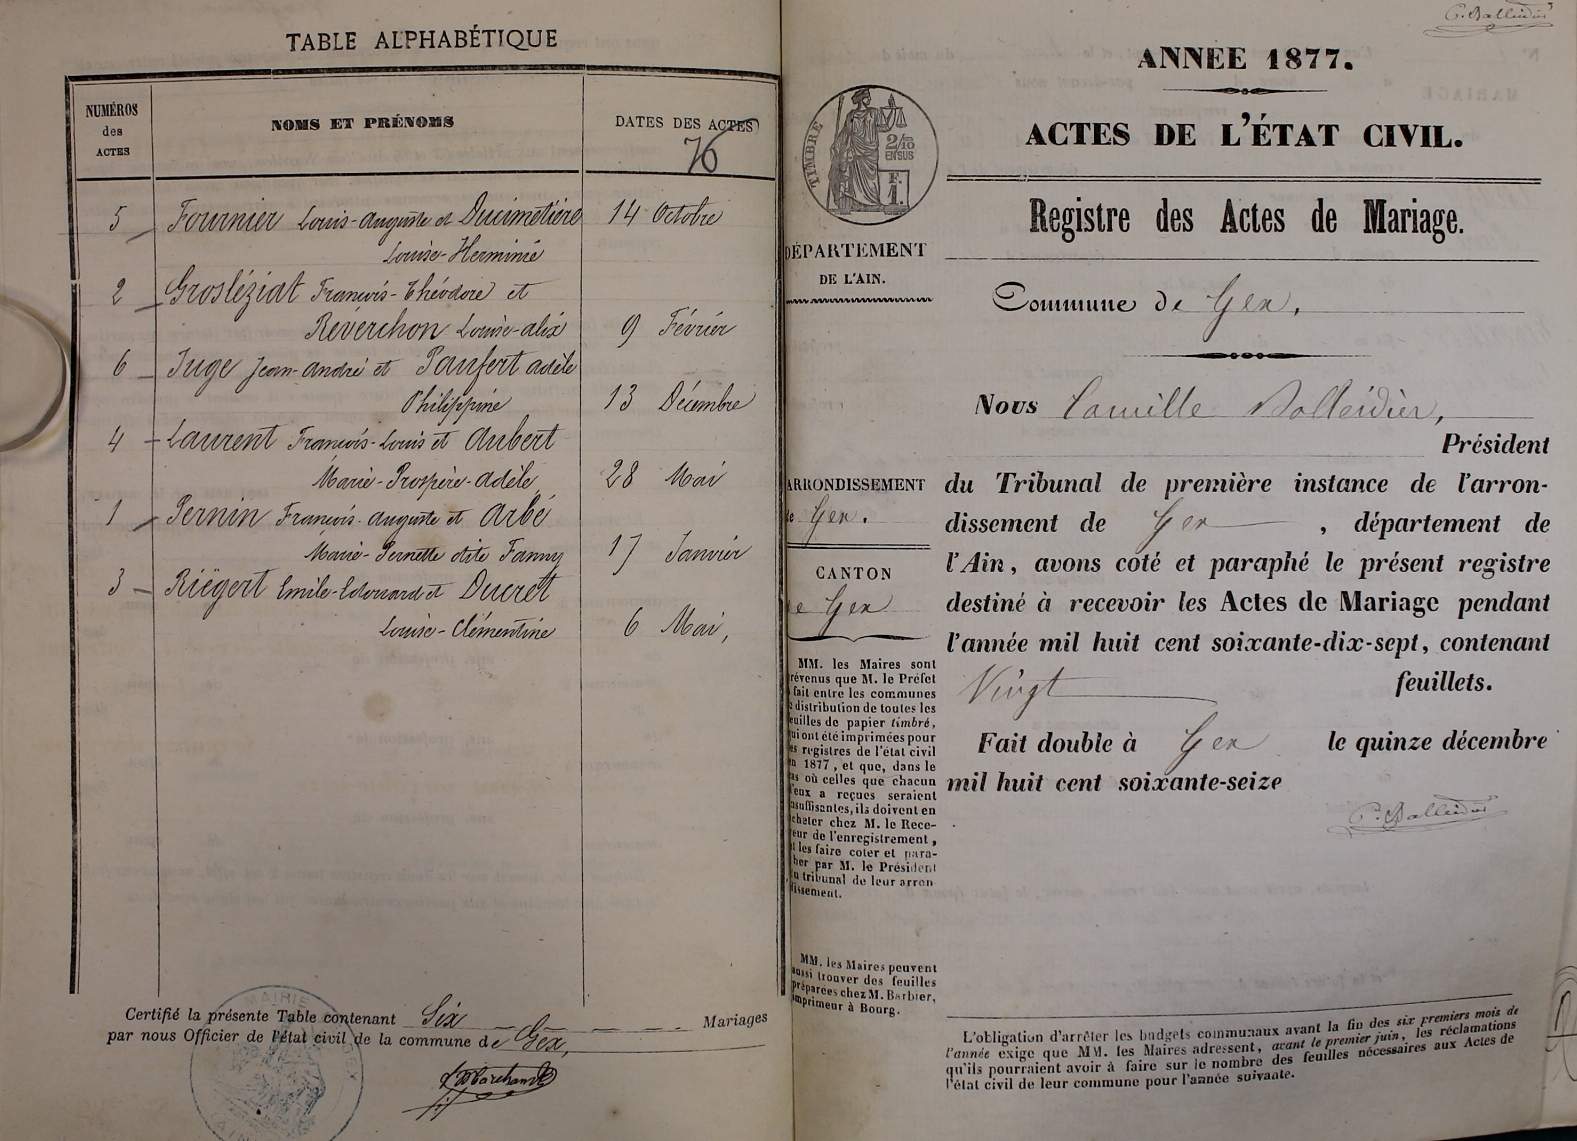 TABLE ALPHABÉTIQUE
NUMÉROS
des
ACTES
NOMS ET PRÉNOMS
DATES DES ACTES
76
5 Fournier Louis-Auguste et Ducimetière 14 Octobre
Louise-Herminie
2 Grosléziat François-Théodore et
Reverchon Louise-Alix 9 Février
6 Juge Jean-André et Panfert Adèle
Philippine 13 Décembre
4 Laurent François-Louis et Aubert
Marie-Prospère-Adèle 28 Mai
1 Pernin François-Auguste et Arbé
Marie-Pernette dite Fanny 17 Janvier
3 Riégert Emile-Edouard et Ducret
Louise-Clémentine 6 Mai,
Certifié la présente Table contenant Six Mariages
par nous Officier de l'état civil de la commune de Gex,
MAIRIE
C. Balleidier
ANNÉE 1877.
ACTES DE L'ÉTAT CIVIL.
Registre des Actes de Mariage.
TIMBRE
2/10
EN SUS
F.
1.
DÉPARTEMENT
DE L'AIN.
Commune de Gex.
Nous Camille Balleidier,
Président
du Tribunal de première instance de l'arron-
dissement de Gex, département de
l'Ain, avons coté et paraphé le présent registre
destiné à recevoir les Actes de Mariage pendant
l'année mil huit cent soixante-dix-sept, contenant
Vingt feuillets.
Fait double à Gex le quinze décembre
mil huit cent soixante-seize
C. Balleidier
ARRONDISSEMENT
de Gex.
CANTON
de Gex
MM. les Maires sont
révenus que M. le Préfet
fait entre les communes
distribution de toutes les
euilles de papier timbré,
ui ont été imprimées pour
es registres de l'état civil
n 1877, et que, dans le
as où celles que chacun
d'eux a reçues seraient
nsuffisantes, ils doivent en
cheter chez M. le Rece-
eur de l'enregistrement,
t les faire coter et para-
her par M. le Président
u tribunal de leur arron
issement.
MM. les Maires peuvent
aussi trouver des feuilles
préparées chez M. Barbier,
imprimeur à Bourg.
L'obligation d'arrêter les budgets communaux avant la fin des six premiers mois de
l'année exige que MM. les Maires adressent, avant le premier juin, les réclamations
qu'ils pourraient avoir à faire sur le nombre des feuilles nécessaires aux Actes de
l'état civil de leur commune pour l'année suivante.